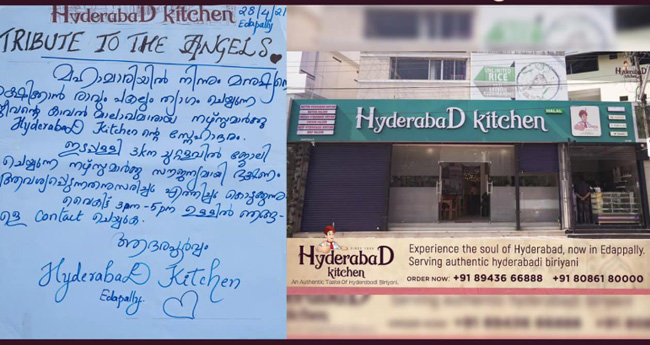 HyderabaD kitchen
28/4/21
Edapally
TRIBUTE TO THE ANGELS
മഹാമാരിയിൽ നിന്നും മനുഷ്യരെ
രക്ഷിക്കാൻ രാവും പകലും ത്യാഗം ചെയ്യുന്ന
ജീവൻ്റെ കാവൽ മാലാഖമാരായ നഴ്സുമാർക്കു
Hyderabad Kitchen ൻ്റെ സ്നേഹാദരം.
ഇടപ്പള്ളി 3km ചുറ്റളവിൽ ജോലി
ചെയ്യുന്ന നഴ്സുമാർക്കു സൗജന്യമായി ഭക്ഷണം
ആവശ്യപ്പെടുന്നതനുസരിച്ചും എത്തിച്ചും കൊടുക്കുന്നു
വൈകിട്ട് 3pm - 5pm ഉള്ളിൽ ഞങ്ങ-
ളെ contact ചെയ്യുക.
ആദരപൂർവ്വം
Hyderabad Kitchen
Edapally
HyderabaD kitchen
HALAL
HyderabaD
kitchen
SINCE
HyderabaD
kitchen
An Authentic Taste Of Hyderabadi Biriyani.
Experience the soul of Hyderabad, now in Edappally.
Serving authentic hyderabadi biriyani
ORDER NOW: +91 89436 66888 +91 80861 80000